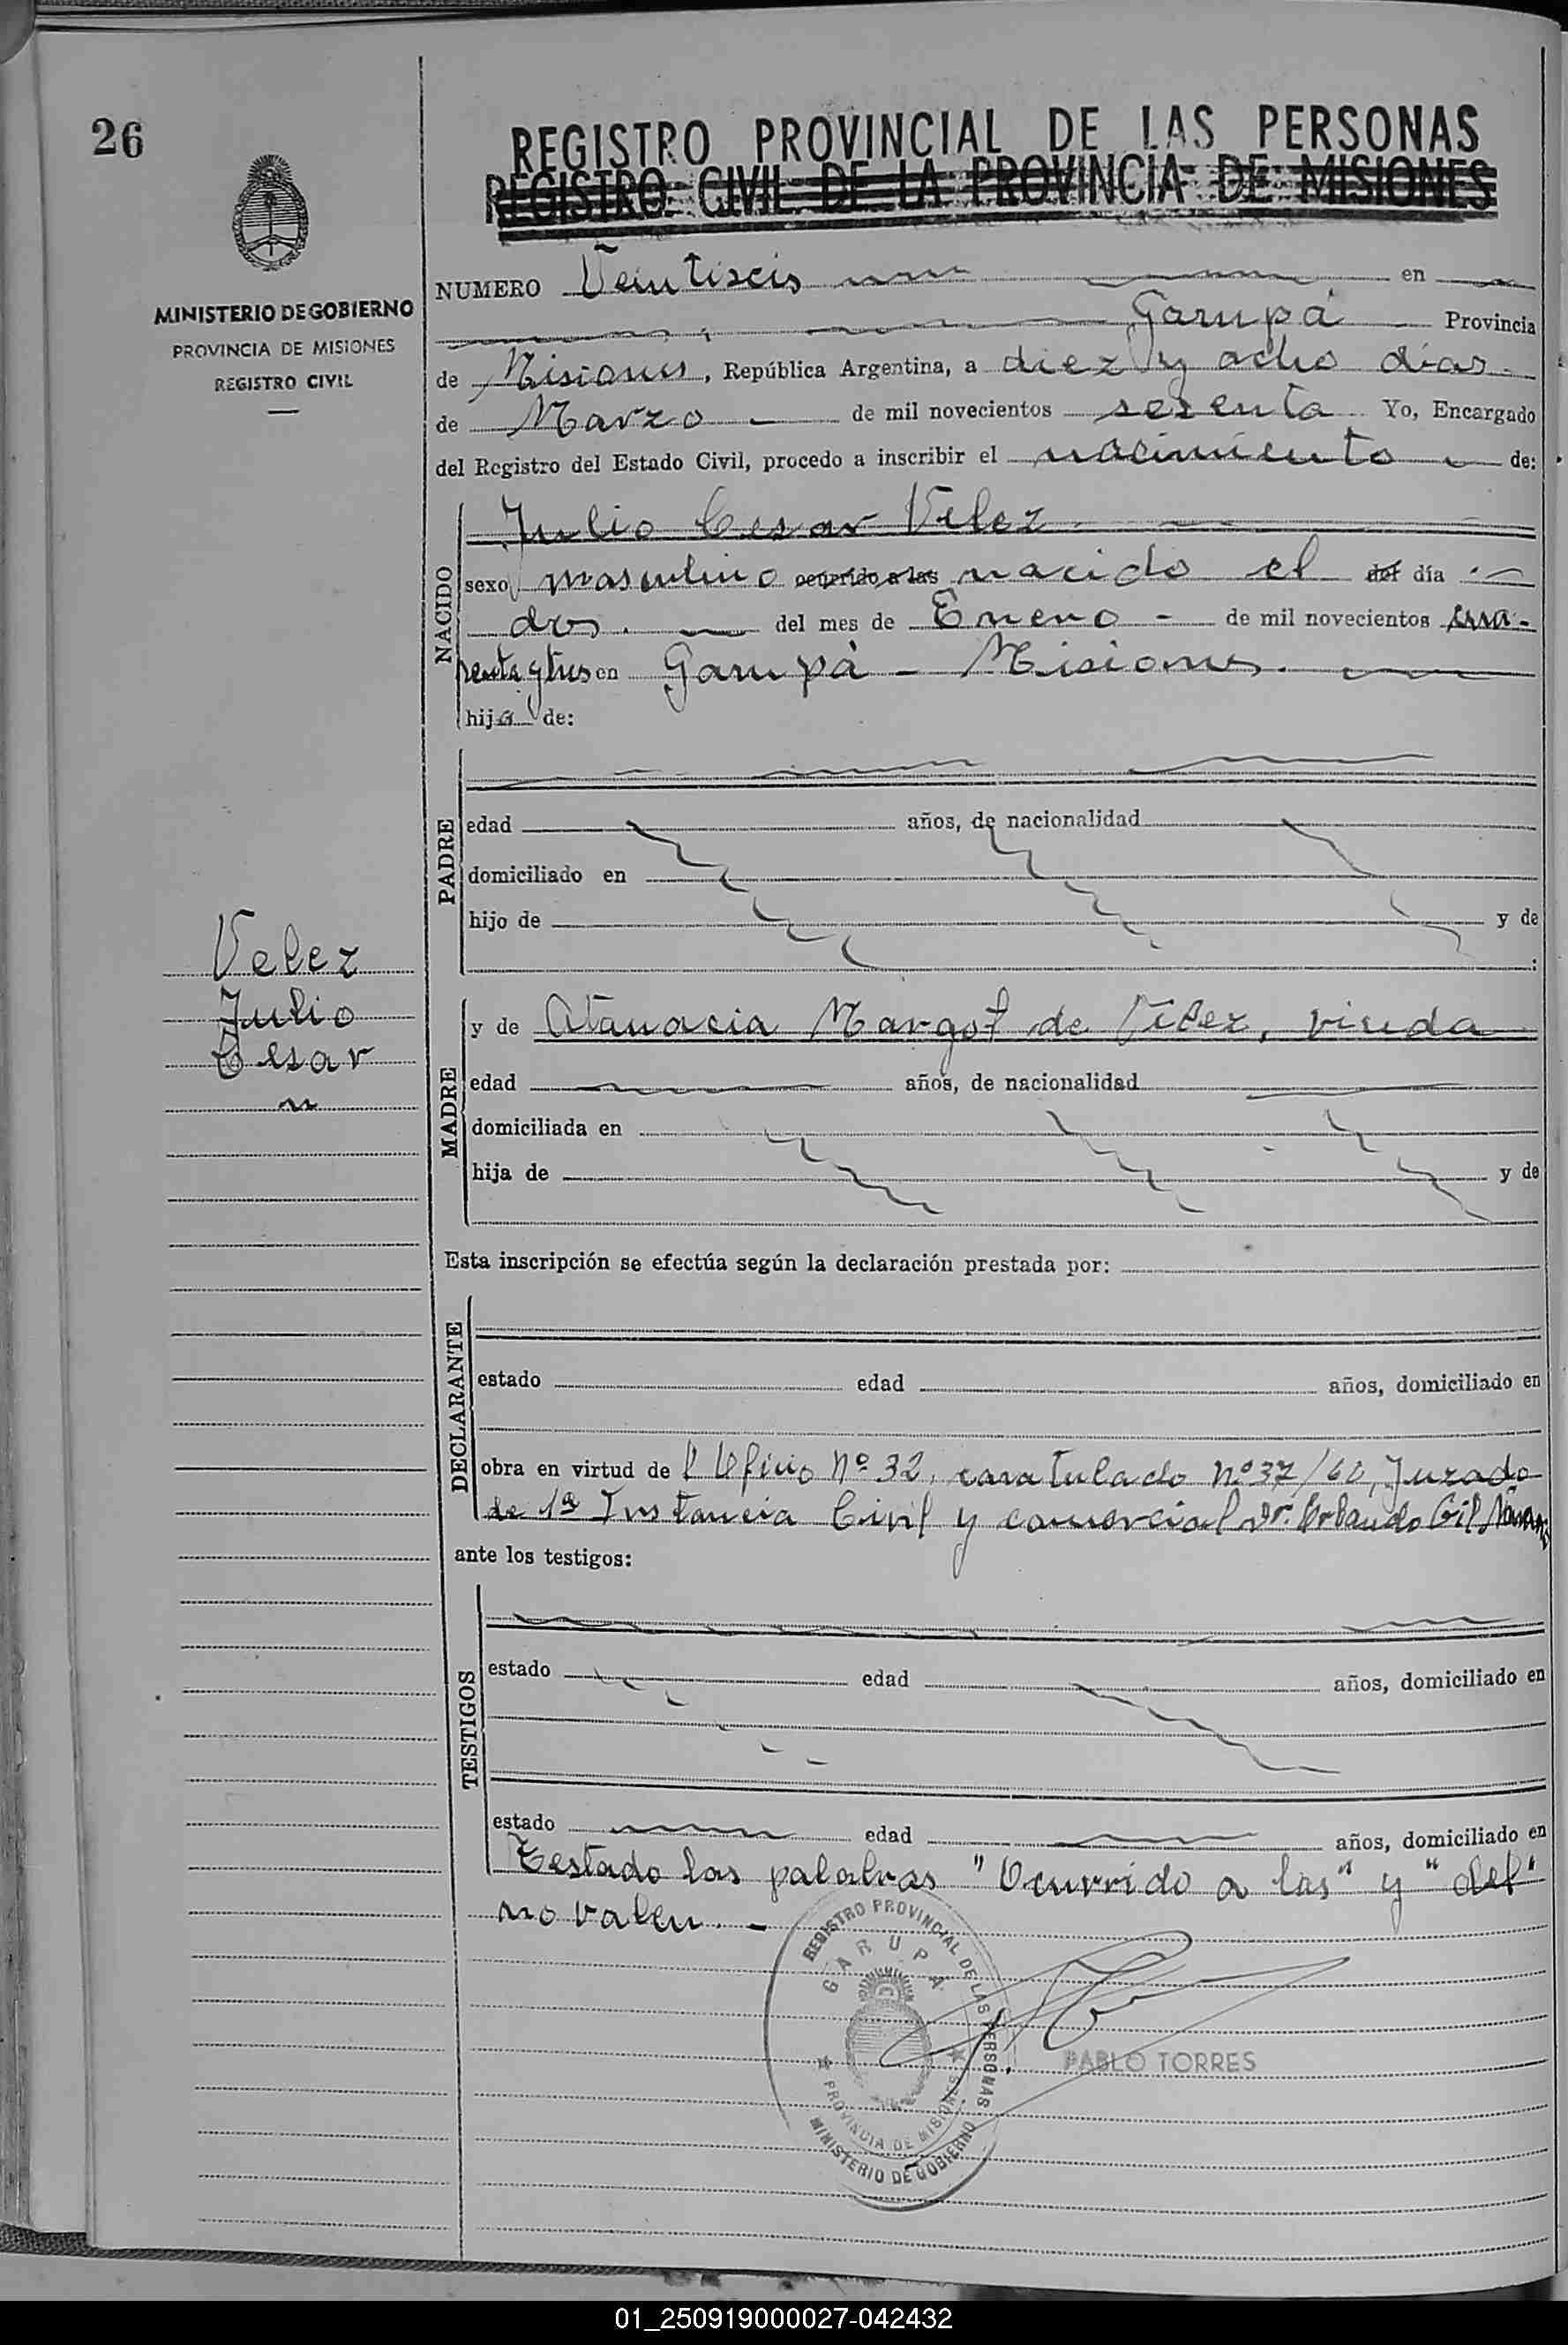 26
REGISTRO PROVINCIAL DE LAS PERSONAS
REGISTRO CIVIL DE LA PROVINCIA DE MISIONES
MINISTERIO DE GOBIERNO
PROVINCIA DE MISIONES
REGISTRO CIVIL
NUMERO Veintiseis en
Garupá Provincia
de Misiones, República Argentina, a diez y ocho días
de Marzo de mil novecientos sesenta Yo, Encargado
del Registro del Estado Civil, procedo a inscribir el nacimiento de:
NACIDO
Julio Cesar Velez
sexo masculino ocurrido a las nacido el del día
dos. del mes de Enero - de mil novecientos cua-
renta y tres en Garupá - Misiones.
hijo de:
PADRE
edad años, de nacionalidad
domiciliado en
hijo de y de
:
Velez
Julio
Cesar
MADRE
y de Atanacia Margot de Velez, viuda
edad años, de nacionalidad
domiciliada en
hija de y de
Esta inscripción se efectúa según la declaración prestada por:
DECLARANTE
estado edad años, domiciliado en
obra en virtud de l Oficio Nº 32, caratulado nº 37/60, Juzado
de 1ª Instancia Civil y comercial Dr. Orlando Gil
ante los testigos:
TESTIGOS
estado edad años, domiciliado en
estado edad años, domiciliado en
Testado las palabras "Ocurrido a las" y "del"
no valen. -
REGISTRO PROVINCIAL DE LAS PERSONAS
GARUPA
PROVINCIA DE MISIONES
MINISTERIO DE GOBIERNO
PABLO TORRES
01_250919000027-042432